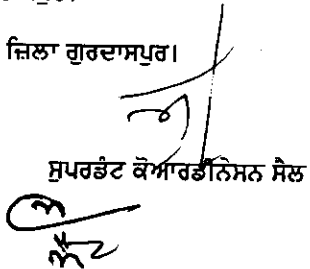 ਜ਼ਿਲਾ ਗੁਰਦਾਸਪੁਰ।
ਸੁਪਰਡੰਟ ਕੋਆਰਡੀਨੇਸਨ ਸੈਲ